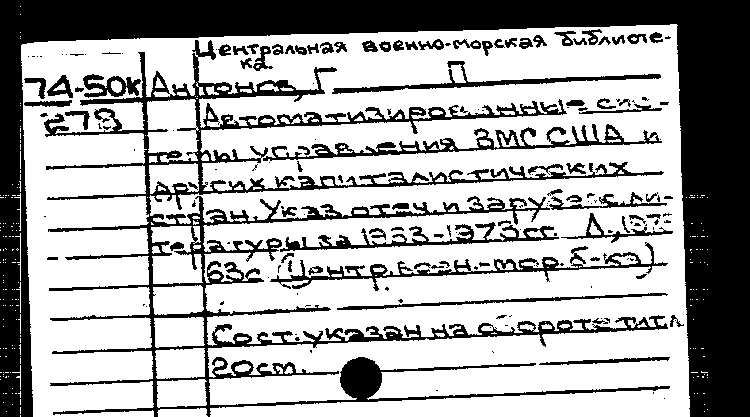 Центральная военно-морская библиоте-
ка.
74-50к Антонов, Г П
278 Автоматизированные сис-
темы управления ВМС США и
других капиталистических
стран. Указ. отеч. и зарубеж. ли-
тературы за 1963-1973 гг. Л., 1973
63с (Центр. воен.-мор. б-ка)
Сост. указан на обороте тит. л
20 см.